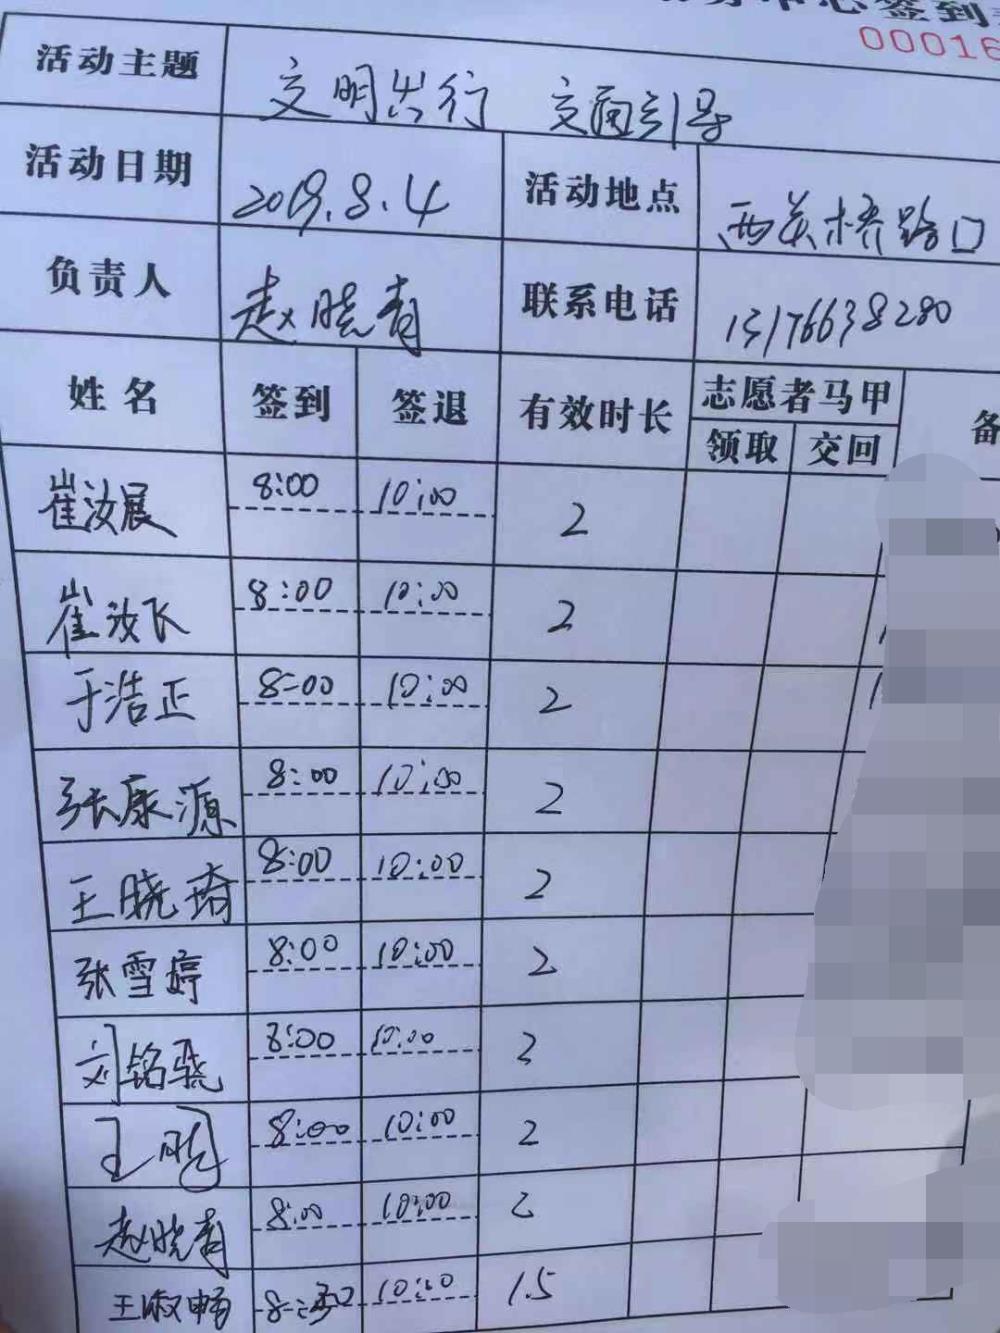 心签到
00016
活动主题 文明出行 交通引导
活动日期 2019.8.4 活动地点 西关桥路口
负责人 赵晓青 联系电话 13176638280
姓名 签到 签退 有效时长 志愿者马甲 备
领取 交回
崔汝展 8:00 10:00 2
崔汝飞 8:00 10:00 2
于浩正 8:00 10:00 2
张康源 8:00 10:00 2
王晓琦 8:00 10:00 2
张雪婷 8:00 10:00 2
刘铭骁 8:00 10:00 2
王 8:00 10:00 2
赵晓青 8:00 10:00 2
王淑畅 10:00 1.5